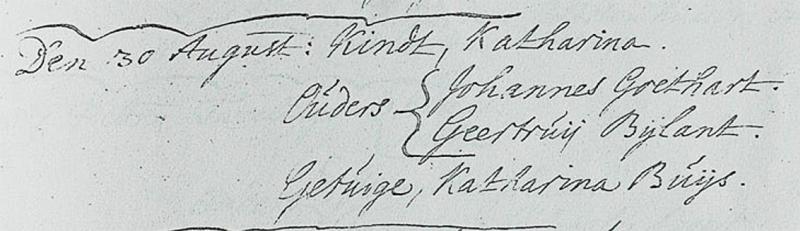 Den 30 August: Kindt, Katharina.
Ouders Johannes Goethart.
Geertruij Bylant.
Getuige, Katharina Buys.